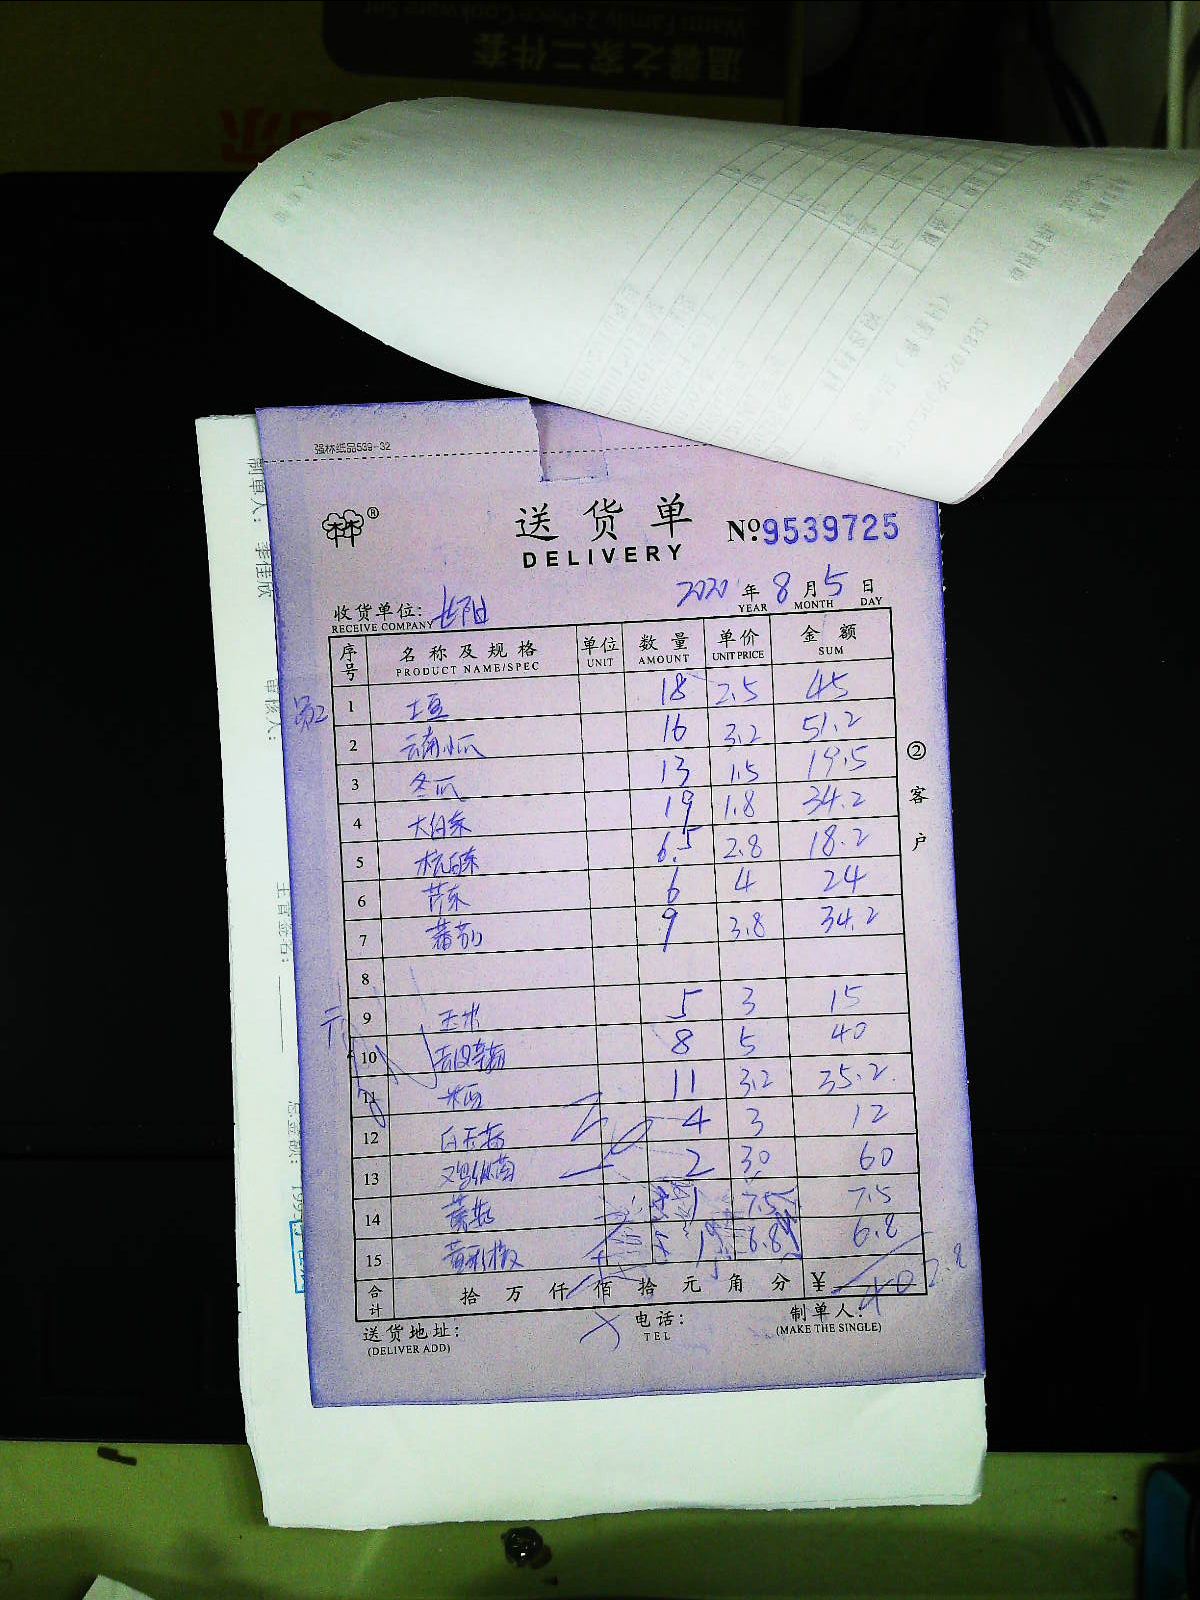 温馨之家二件套
Warm Family 2-Piece Cookware Set
强林纸品539-32
送货单
DELIVERY
№9539725
2020年8月5日
YEAR MONTH DAY
收货单位:
RECEIVE COMPANY
序号 名称及规格 单位 数量 单价 金额
PRODUCT NAME/SPEC UNIT AMOUNT UNIT PRICE SUM
1 土豆 18 2.5 45
2 云南小瓜 16 3.2 51.2
3 冬瓜 13 1.5 19.5
4 大白菜 19 1.8 34.2
5 杭白菜 6.5 2.8 18.2
6 芹菜 6 4 24
7 蕃茄 9 3.8 34.2
8
9 玉米 5 3 15
10 8 5 40
11 11 3.2 35.2
12 白玉菇 4 3 12
13 鸡枞菌 2 30 60
14 1 7.5 7.5
15 黄彩椒 1 6.8 6.8
合计 拾 万 仟 佰 拾 元 角 分 ¥ 402.8
送货地址: 电话: 制单人:
(DELIVER ADD) TEL (MAKE THE SINGLE)
②客户
制单人: 李佳欣
审核人:
主管签名:
总金额: